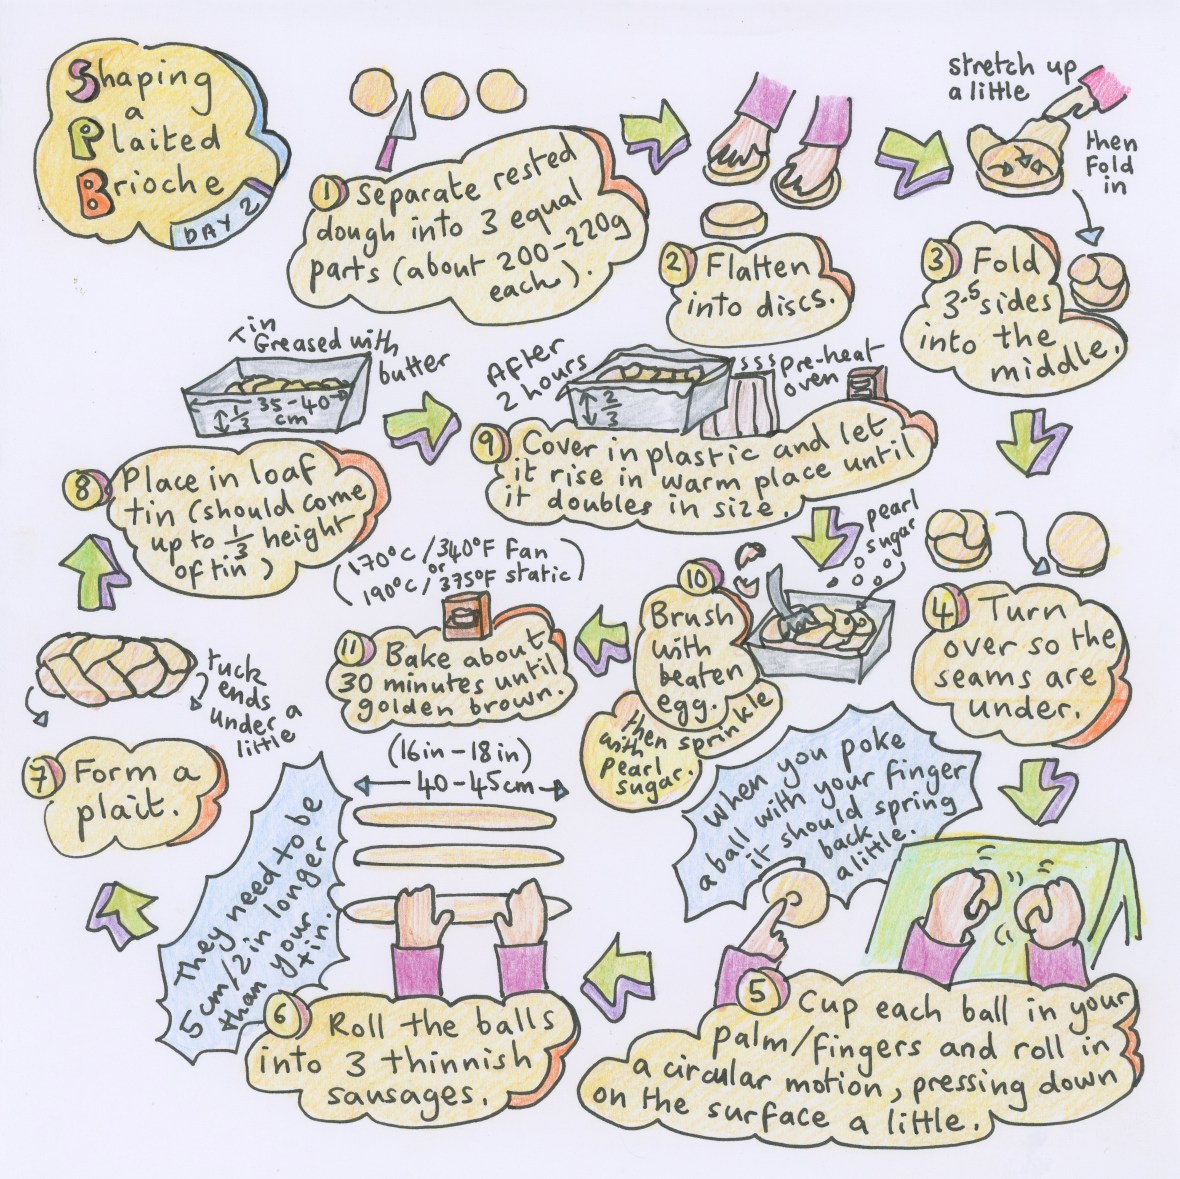 Shaping
a
Plaited
Brioche
DAY 2
1 Separate rested
dough into 3 equal
parts (about 200-220g
each).
2 Flatten
into discs.
stretch up
a little
then
Fold
in
3 Fold
3-5 sides
into the
middle.
4 Turn
over so the
seams are
under.
When you poke
a ball with your finger
it should spring
back
a little.
5 Cup each ball in your
palm/fingers and roll in
a circular motion, pressing down
on the surface a little.
(16in-18in)
40-45cm
They need to be
5cm/2in longer
than your
tin.
6 Roll the balls
into 3 thinnish
sausages.
tuck
ends
under a
little
7 Form a
plait.
Tin
Greased with
butter
1/3
35-40
cm
8 Place in loaf
tin (should come
up to 1/3 height
of tin)
After
2 hours
2/3
sss
pre-heat
oven
9 Cover in plastic and let
it rise in warm place until
it doubles in size.
pearl
sugar
10
Brush
with
beaten
egg.
then sprinkle
with
pearl
sugar.
(170°C/340°F Fan
or
190°C/375°F static)
11 Bake about
30 minutes until
golden brown.